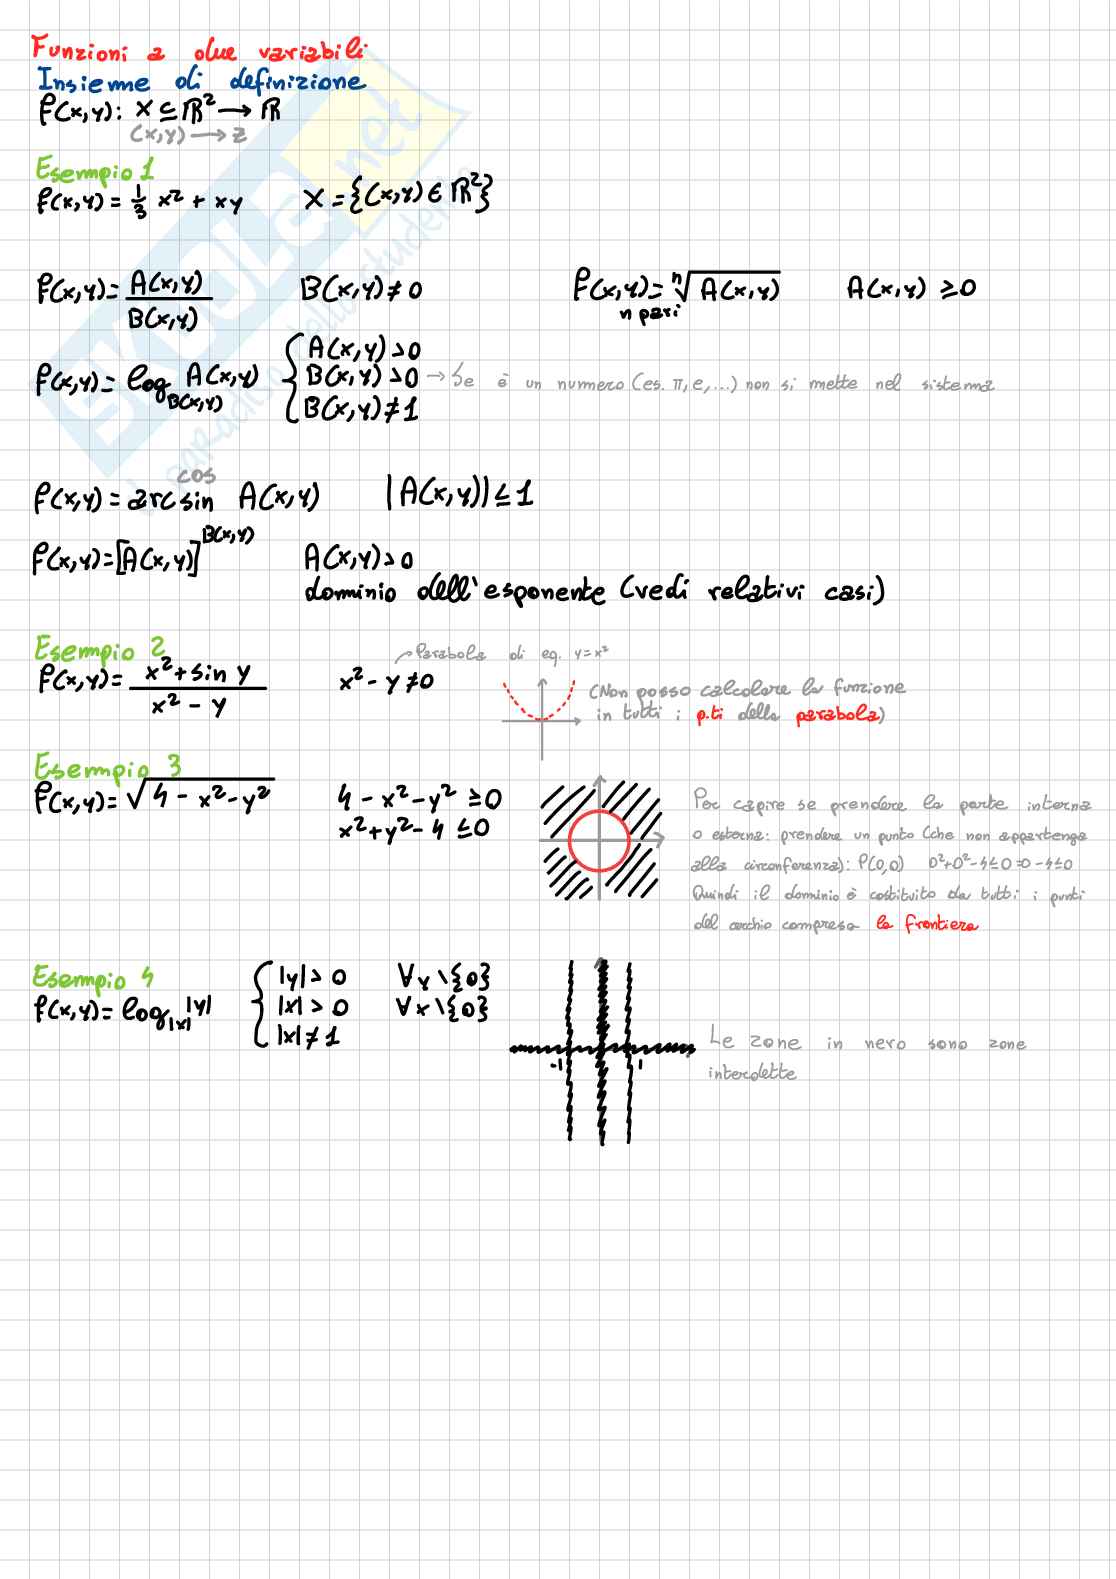 Funzioni a due variabili
Insieme di definizione
f(x,y): X ⊆ ℝ² → ℝ
(x,y) → z
Esempio 1
f(x,y) = 1/3 x² + xy X = {(x,y) ∈ ℝ²}
f(x,y) = A(x,y)/B(x,y) B(x,y) ≠ 0 f(x,y) = ⁿ√A(x,y) A(x,y) ≥ 0
n pari
f(x,y) = log_B(x,y) A(x,y)
A(x,y) > 0
B(x,y) > 0 → Se è un numero (es. π, e, ...) non si mette nel sistema
B(x,y) ≠ 1
cos
f(x,y) = arcsin A(x,y) |A(x,y)| ≤ 1
f(x,y) = [A(x,y)]^B(x,y) A(x,y) > 0
dominio dell'esponente (vedi relativi casi)
Esempio 2
f(x,y) = x² + sin y / x² - y x² - y ≠ 0
Parabola di eq. y = x²
(Non posso calcolare la funzione
in tutti i p.ti della parabola)
Esempio 3
f(x,y) = √4 - x² - y² 4 - x² - y² ≥ 0
x² + y² - 4 ≤ 0
Per capire se prendere la parte interna
o esterna: prendere un punto (che non appartenga
alla circonferenza): P(0,0) 0² + 0² - 4 ≤ 0 ⇒ 0 - 4 ≤ 0
Quindi il dominio è costituito da tutti i punti
del cerchio compresa la frontiera
Esempio 4
f(x,y) = log_|x| |y|
|y| > 0 ∀y \ {0}
|x| > 0 ∀x \ {0}
|x| ≠ 1
-1 1
Le zone in nero sono zone
interdette
SKUOLA.net